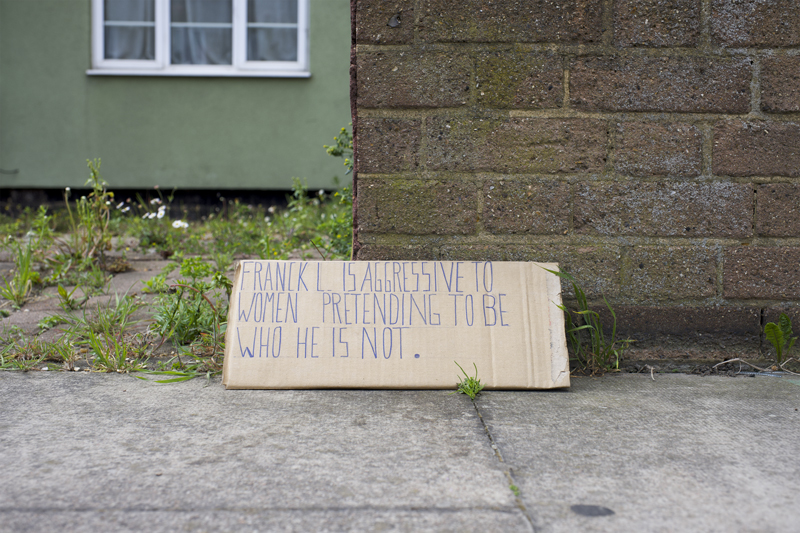 FRANCK L. IS AGGRESSIVE TO
WOMEN PRETENDING TO BE
WHO HE IS NOT.